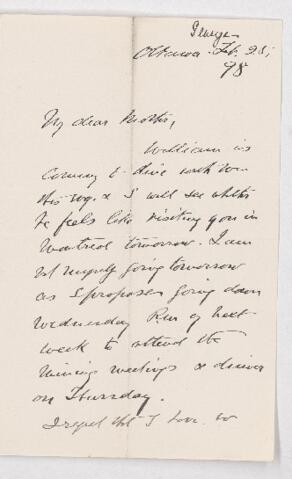 George
Ottawa. Feb. 25,
98
My dear Mother,
William is
coming to dine with me
this evg. & I will see whether
he feels like visiting you in
Montreal tomorrow. I am
not myself going tomorrow
as I propose going down
Wednesday of next
week to attend the
Mining meetings & dinner
on Thursday.
I regret that I have to